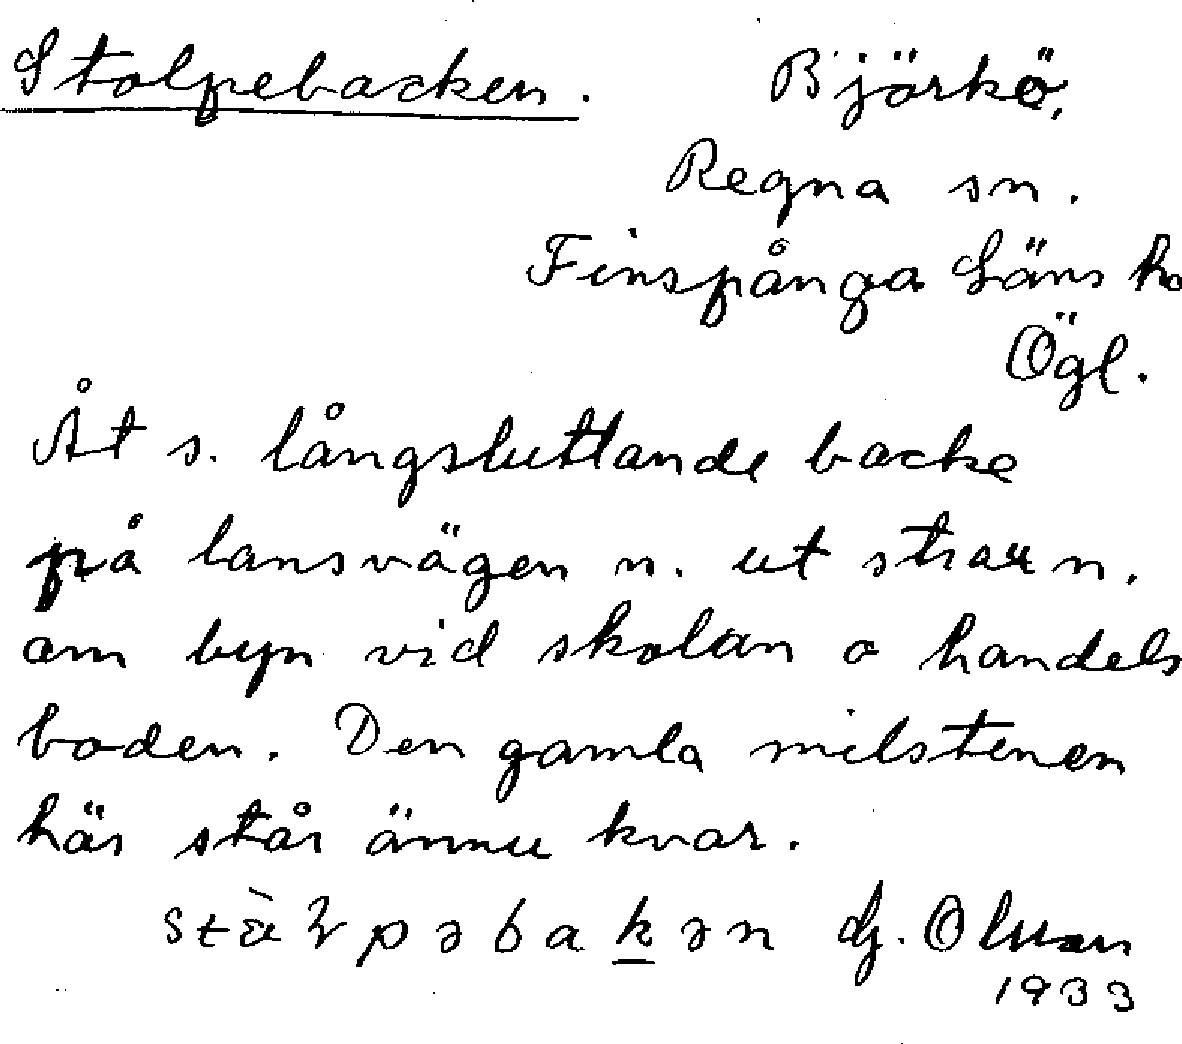 Stolpebacken. Björkö,
Regna sn.
Finspånga Läns h
Ögl.
Åt s. långsluttande backe
på lansvägen n. ut strax n.
om byn vid skolan o handels
boden. Den gamla milstenen
här står ännu kvar.
1933